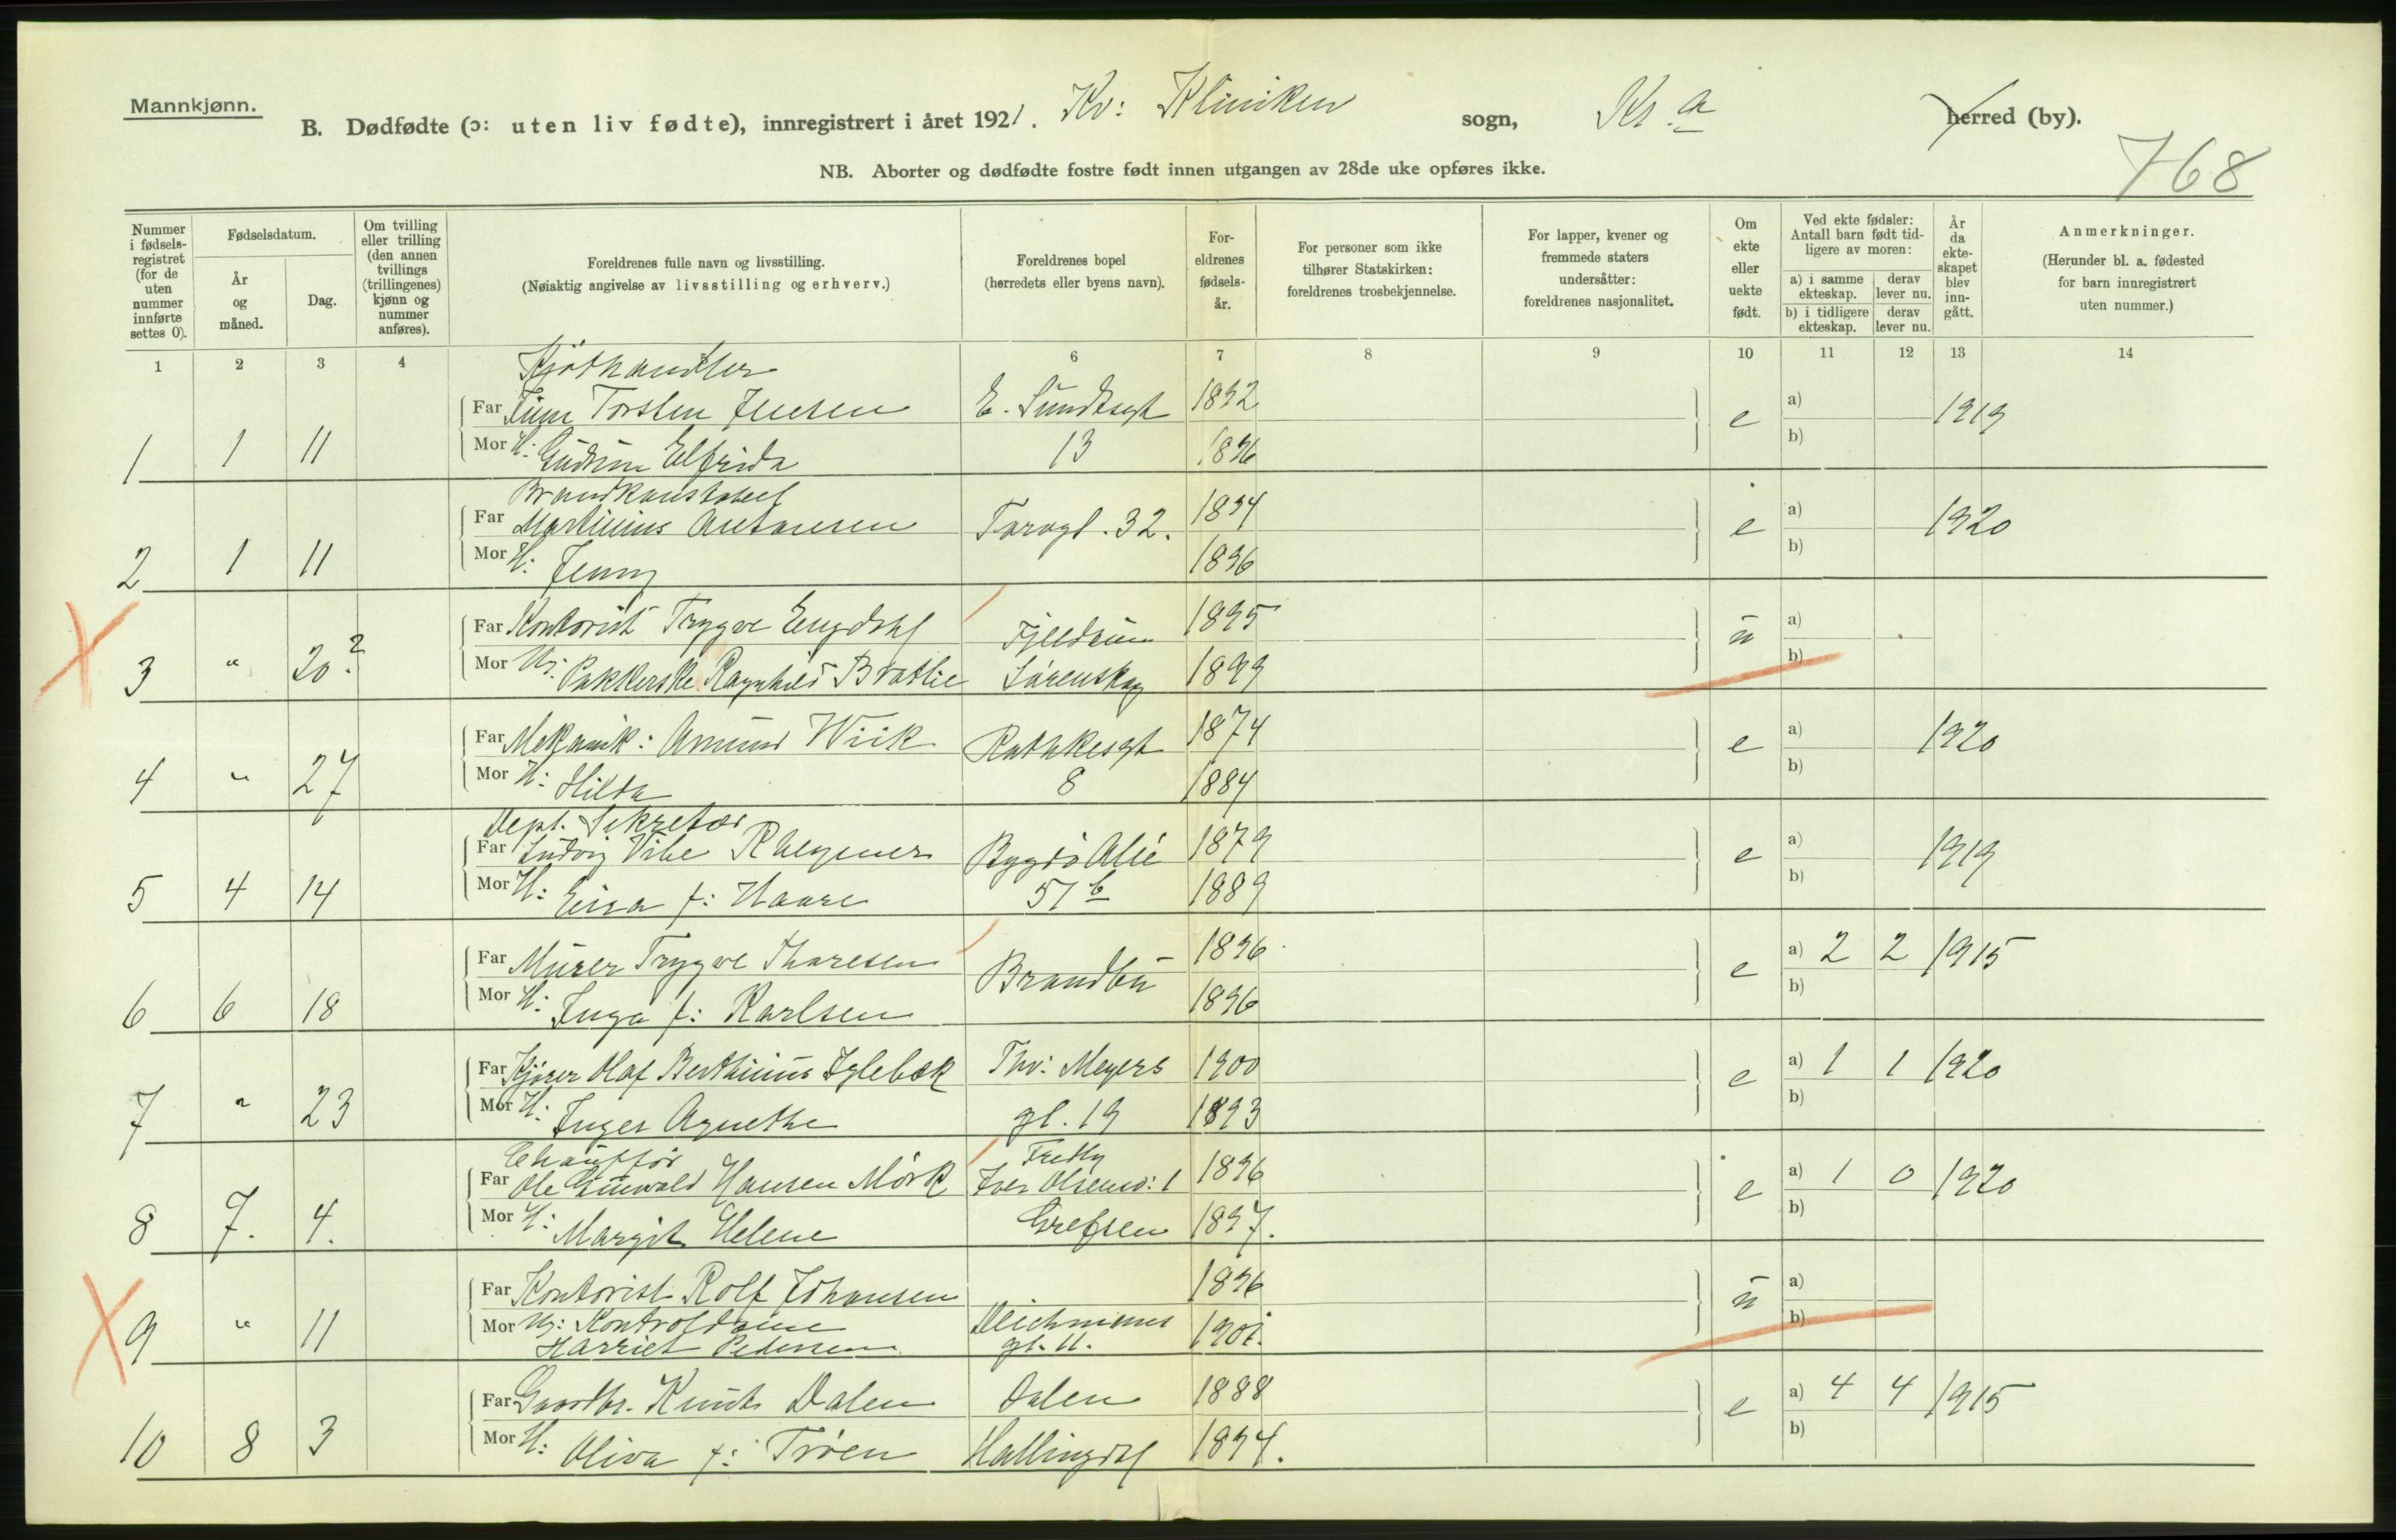 Mannkjønn.
B. Dødfødte (ɔ: uten liv fødte), innregistrert i året 1921. Kv: Kliniken sogn, Kr.a herred (by).
NB. Aborter og dødfødte fostre født innen utgangen av 28de uke opføres ikke.
768
Nummer i fødsels-registret (for de uten nummer innførte settes 0).
Fødselsdatum.
År og måned.
Dag.
Om tvilling eller trilling (den annen tvillings (trillingenes) kjønn og nummer anføres).
Foreldrenes fulle navn og livsstilling.
(Nøiaktig angivelse av livsstilling og erhverv.)
Foreldrenes bopel
(herredets eller byens navn).
For-eldrenes fødsels-år.
For personer som ikke tilhører Statskirken: foreldrenes trosbekjennelse.
For lapper, kvener og fremmede staters undersåtter: foreldrenes nasjonalitet.
Om ekte eller uekte født.
Ved ekte fødsler: Antall barn født tid-ligere av moren:
a) i samme ekteskap. derav lever nu.
b) i tidligere ekteskap. derav lever nu.
År da ekte-skapet blev inn-gått.
Anmerkninger.
(Herunder bl. a. fødested for barn innregistrert uten nummer.)
1 2 3 4 6 7 8 9 10 11 12 13 14
Kjøthandler
Far Torsten Jensen E. Sundtsgt 1892 e a) 1919
1 1 11 Mor H: Gudrun Elfrida 13 1896 b)
Brandkonstabel
Far Martinius Antonsen Torvgt. 32. 1894 e a) 1920
2 1 11 Mor H: Jenny 1896 b)
Far Kontorist Trygve Engdahl Fjeldhus 1895 u a)
3 " 20? Mor Ug: Pakkerske Ragnhild Bratlie Lørenskog 1899 b)
Far Mekanik: Amund Wiik Rathkesgt 1874 e a) 1920
4 " 27 Mor H: Hilda 8 1884 b)
Dept. Sekretær
Far Ludvig Vibe Bygdø Allé 1879 e a) 1919
5 4 14 Mor H: f: 57 b 1889 b)
Far Murer Trygve Thoresen Brandbu 1896 e a) 2 2 1915
6 6 18 Mor H: Inga f: Karlsen 1896 b)
Far Kjører Olaf Berthinius Iglebæk Thv: Meyers 1900 e a) 1 1 1920
7 " 23 Mor H: Inger Agnethe gt. 19 1893 b)
Chauffør
Far Ole Hansen Mørk Iver Olsensv: 1 1896 e a) 1 0 1920
8 7. 4. Mor H: Margit Helene Grefsen 1897. b)
Far Kontorist Rolf Johansen 1896 u a)
9 " 11 Mor Ug: Kontroldame Deichmans 1901. b)
Harriet Pedersen gt. 11.
Far Gaardbr. Knut Dalen Dalen 1888 e a) 4 4 1915
10 8 3 Mor H: Oliva f: Trøen Hallingdal 1894. b)